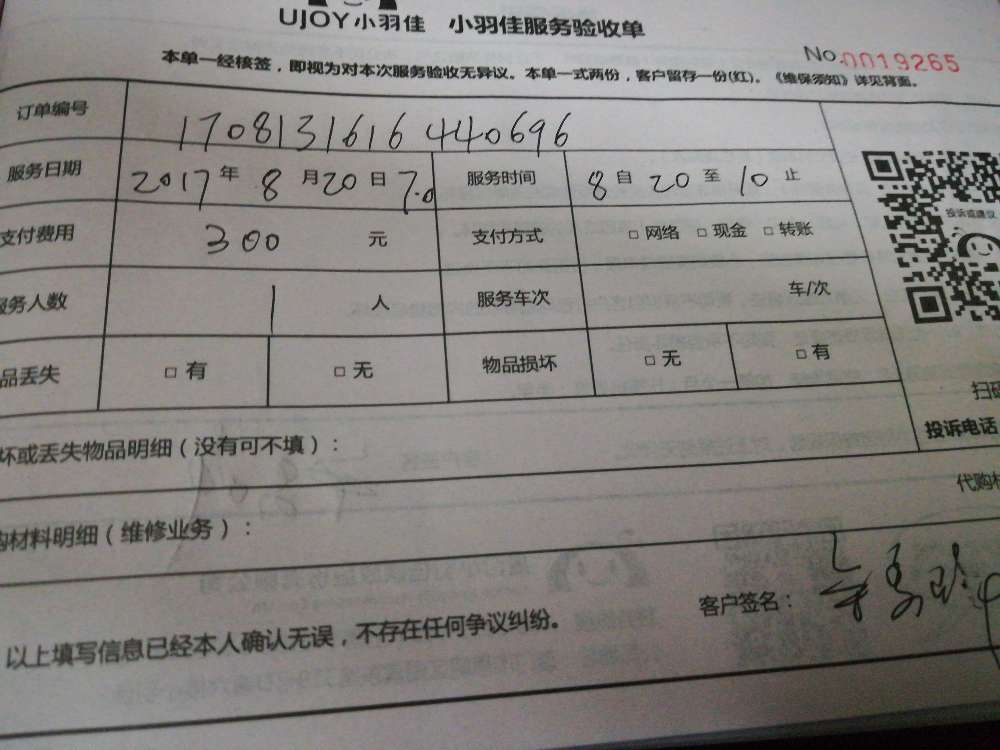 UJOY小羽佳 小羽佳服务验收单
No.0019265
本单一经核签，即视为对本次服务验收无异议。本单一式两份，客户留存一份(红)。《维保须知》详见背面。
订单编号 1708131616440696
服务日期 2017年8月20日 服务时间 8自20至10止
支付费用 300 元 支付方式 □网络 □现金 □转账
服务人数 1 人 服务车次 车/次
品丢失 □有 □无 物品损坏 □无 □有
投诉或建议
扫码
投诉电话
坏或丢失物品明细（没有可不填）：
代购材
购材料明细（维修业务）：
客户签名：
以上填写信息已经本人确认无误，不存在任何争议纠纷。